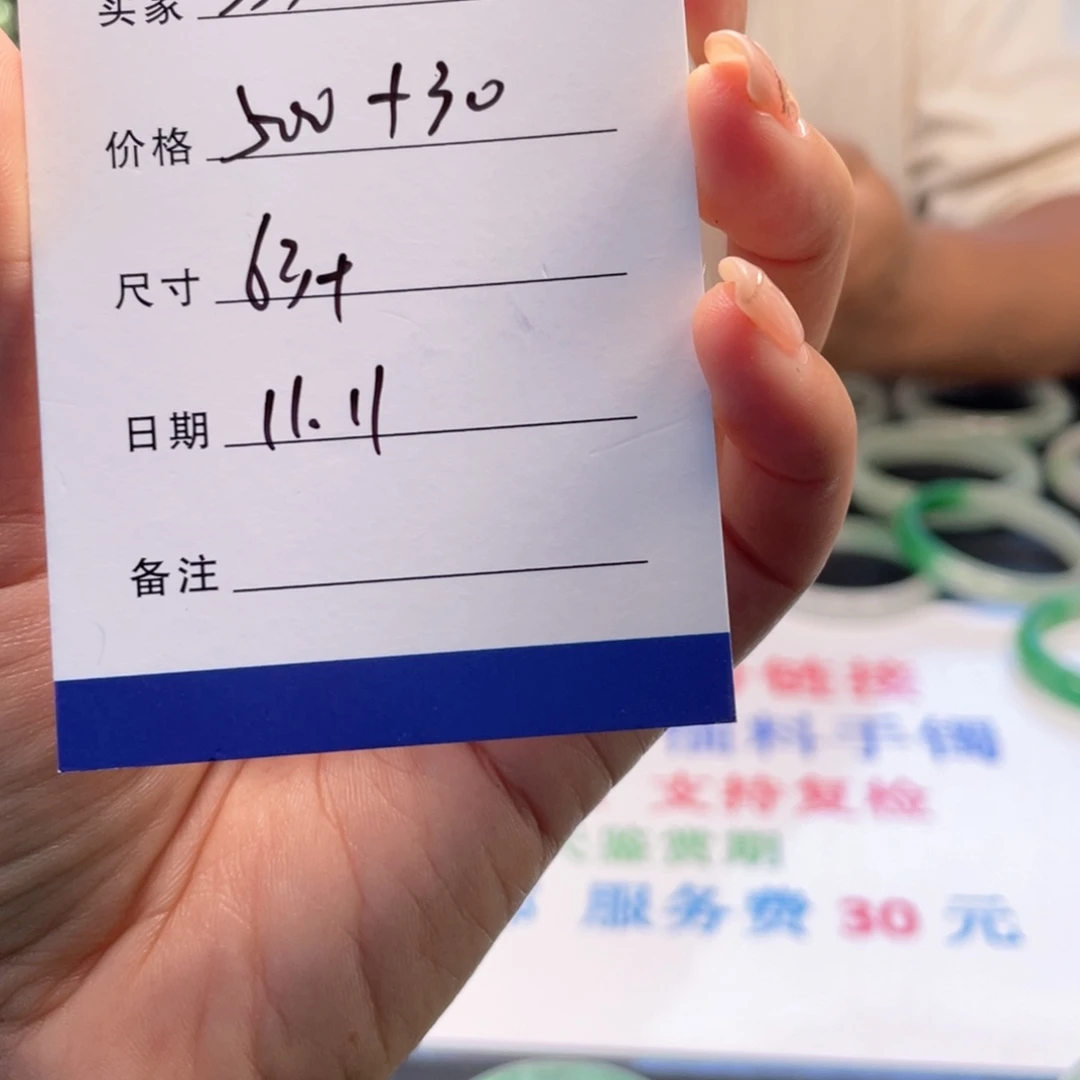 买家
价格 500+30
尺寸 63+
日期 11.11
备注
链接
料手镯
支持复检
鉴赏期
服务费 30 元